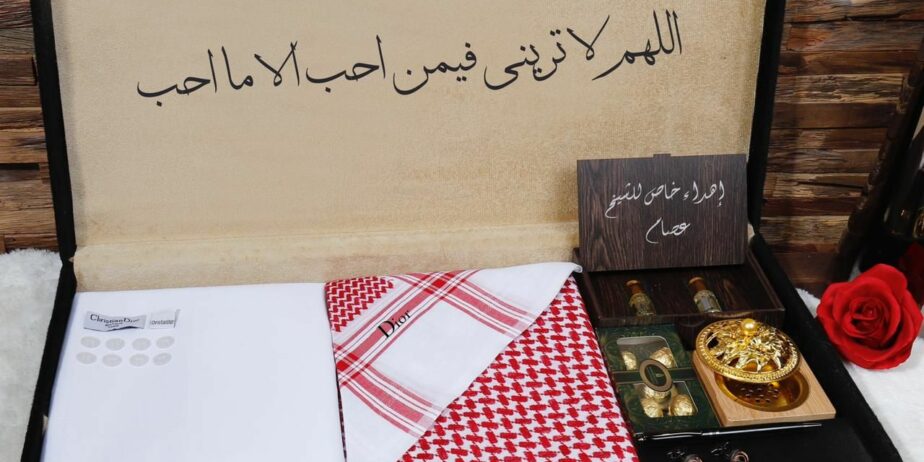 اللهم لا تريني فيمن احب ألا ما احب
إهداء خاص للشيخ
عصام
Christian Dior
Dior